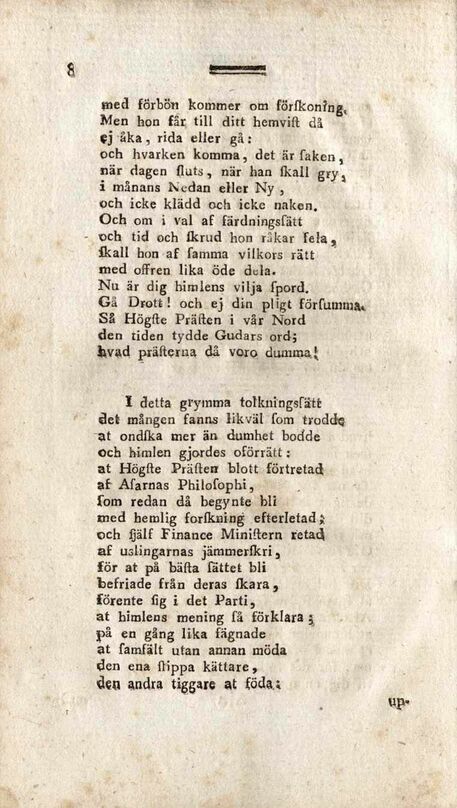 8
med förbön kommer om förſkoning,
Men hon får till ditt hemviſt då
ej åka, rida eller gå:
och hvarken komma, det är ſaken,
när dagen ſluts, när han ſkall gry,
i månans Nedan eller Ny,
och icke klädd och icke naken.
Och om i val af färdningsſätt
och tid och ſkrud hon råkar fela,
ſkall hon af ſamma vilkors rätt
med offren lika öde dela.
Nu är dig himlens vilja ſpord.
Gå Drott! och ej din pligt förſumma.
Så Högſte Präſten i vår Nord
den tiden tydde Gudars ord;
hvad präſterna då voro dumma!
I detta grymma tolkningsſätt
det mången fanns likväl ſom trodde
at ondſka mer än dumhet bodde
och himlen gjordes oförrätt:
at Högſte Präſten blott förtretad
af Aſarnas Philoſophi,
ſom redan då begynte bli
med hemlig forſkning efterletad;
och ſjälf Finance Miniſtern retad
af uslingarnas jämmerſkri,
för at på bäſta ſättet bli
befriade från deras ſkara,
förente ſig i det Parti,
at himlens mening ſå förklara;
på en gång lika fägnade
at ſamfält utan annan möda
den ena ſlippa kättare,
den andra tiggare at föda;
up-